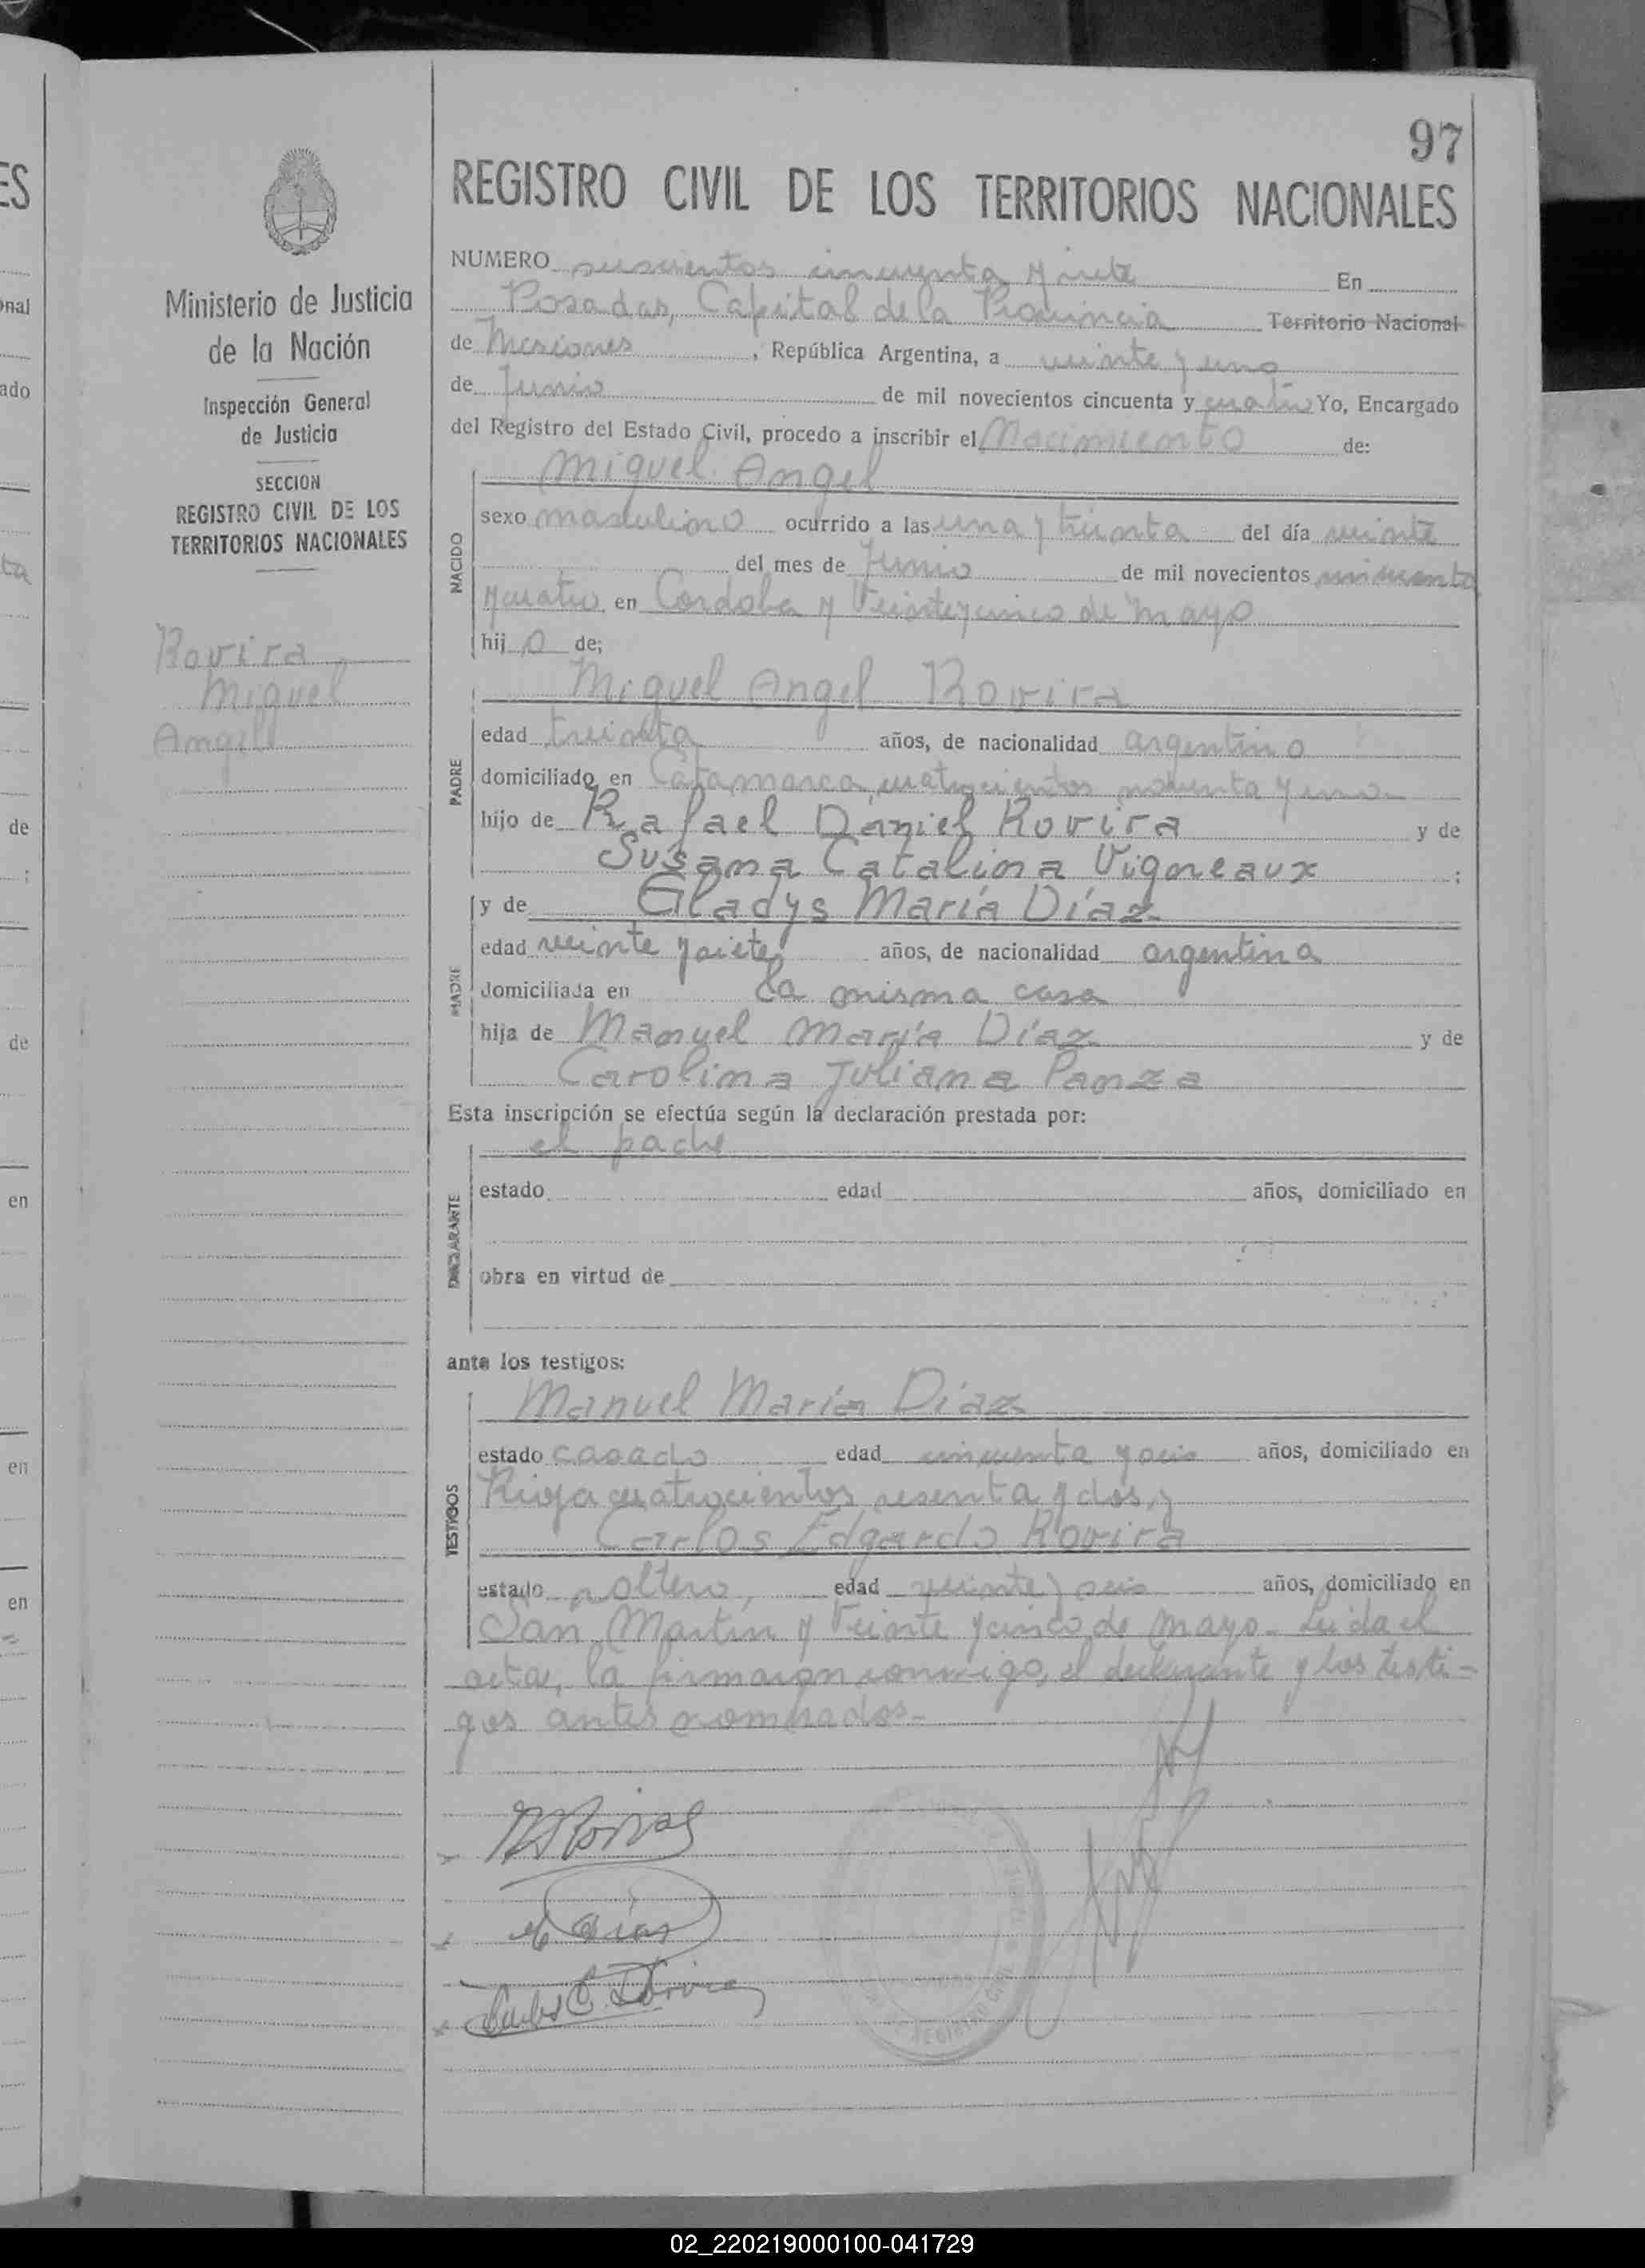 97
REGISTRO CIVIL DE LOS TERRITORIOS NACIONALES
Ministerio de Justicia
de la Nación
Inspección General
de Justicia
SECCION
REGISTRO CIVIL DE LOS
TERRITORIOS NACIONALES
Rovira
Miguel
Angel
NUMERO seiscientos cincuenta y siete En
Posadas, Capital de la Provincia Territorio Nacional
de Misiones, República Argentina, a veinte y uno
de Junio de mil novecientos cincuenta y cuatro Yo, Encargado
del Registro del Estado Civil, procedo a inscribir el Nacimiento de:
Miguel Angel
NACIDO
sexo masculino ocurrido a las una y treinta del día veinte
del mes de Junio de mil novecientos cincuenta
y cuatro en Cordoba y Veinte y cinco de mayo
hijo de;
Miguel Angel Rovira
PADRE
edad treinta años, de nacionalidad argentino
domiciliado en Catamarca cuatrocientos noventa y uno
hijo de Rafael Daniel Rovira y de
Susana Catalina Vigneaux ;
y de Gladys María Díaz
MADRE
edad veinte y siete años, de nacionalidad argentina
domiciliada en la misma casa
hija de Manuel María Díaz y de
Carolina Juliana Panza
Esta inscripción se efectúa según la declaración prestada por:
el padre
DECLARANTE
estado edad años, domiciliado en
obra en virtud de
ante los testigos:
Manuel María Díaz
TESTIGOS
estado casado edad cincuenta y seis años, domiciliado en
Rioja cuatrocientos sesenta y dos, y
Carlos Edgardo Rovira
estado soltero, edad veinte y seis años, domiciliado en
San Martin y Veinte y cinco de mayo. Leida el
acta, la firmaron conmigo, el declarante y los testi-
gos antes nombrados.-
M Díaz
Carlos E. Rovira
02_220219000100-041729